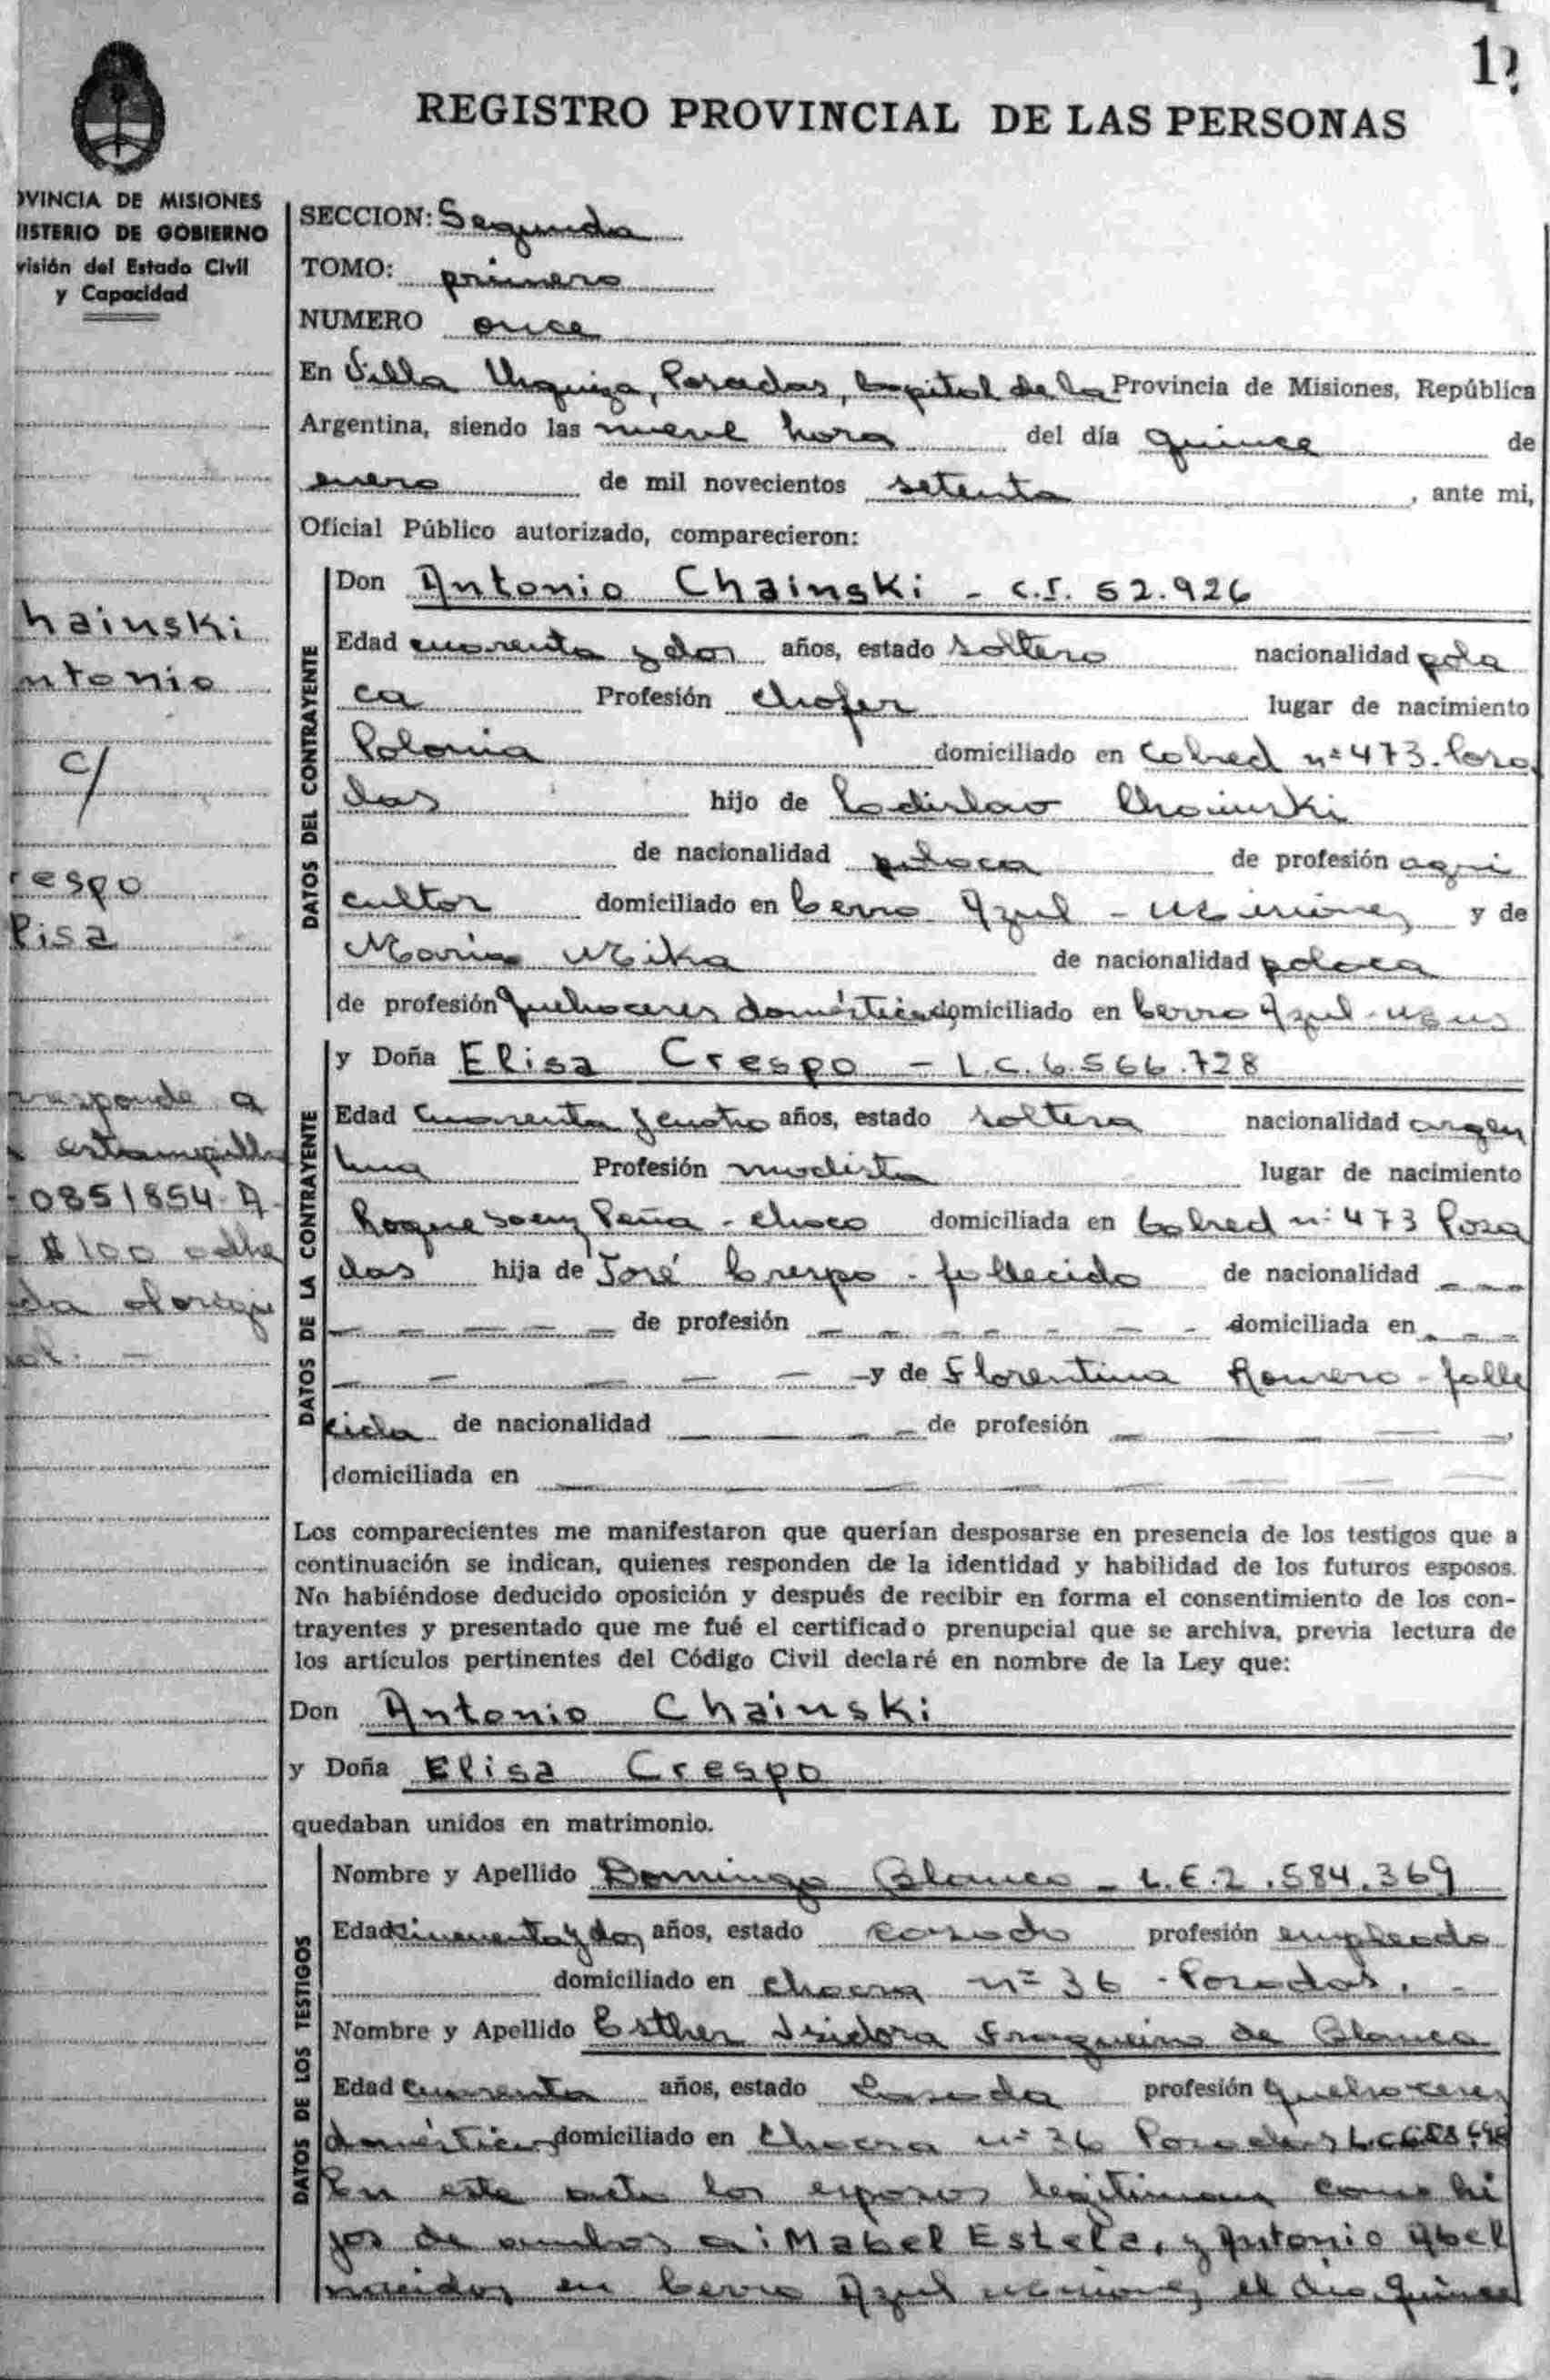 12
REGISTRO PROVINCIAL DE LAS PERSONAS
OVINCIA DE MISIONES
NISTERIO DE GOBIERNO
visión del Estado Civil
y Capacidad
hainski
ntonio
c/
respo
lisa
rresponde a
estampilla
0851854 A
$ 100 adhe
da al origi
nal. -
SECCION: Segunda
TOMO: primero
NUMERO once
En Villa Urquiza, Posadas, Capital de la Provincia de Misiones, República
Argentina, siendo las nueve hora del día quince de
enero de mil novecientos setenta, ante mi,
Oficial Público autorizado, comparecieron:
DATOS DEL CONTRAYENTE
Don Antonio Chainski - C.I. 52.926
Edad cuarenta y dos años, estado soltero nacionalidad pola
ca Profesión chofer lugar de nacimiento
Polonia domiciliado en Cabred nº 473. Posa
das hijo de Ladislao Chainski
de nacionalidad polaca de profesión agri
cultor domiciliado en Cerro Azul - Misiones y de
María Mika de nacionalidad polaca
de profesión quehaceres domésticos domiciliado en Cerro Azul -
DATOS DE LA CONTRAYENTE
y Doña Elisa Crespo - L.C. 6.566.728
Edad cuarenta y cuatro años, estado soltera nacionalidad argen
tina Profesión modista lugar de nacimiento
Roque Saenz Peña - Chaco domiciliada en Cabred nº 473 Posa
das hija de José Crespo - fallecido de nacionalidad - - -
- - - - - - de profesión - - - - - - - domiciliada en - - -
- - - - - - y de Florentina Romero - falle
cida de nacionalidad - - - de profesión - - - -
domiciliada en - - - - - - -
Los comparecientes me manifestaron que querían desposarse en presencia de los testigos que a
continuación se indican, quienes responden de la identidad y habilidad de los futuros esposos.
No habiéndose deducido oposición y después de recibir en forma el consentimiento de los con-
trayentes y presentado que me fué el certificado prenupcial que se archiva, previa lectura de
los artículos pertinentes del Código Civil declaré en nombre de la Ley que:
Don Antonio Chainski
y Doña Elisa Crespo
quedaban unidos en matrimonio.
DATOS DE LOS TESTIGOS
Nombre y Apellido Domingo Blanco - L.E. 2.584.369
Edad cincuenta y dos años, estado casado profesión empleado
domiciliado en chacra nº 36 - Posadas. -
Nombre y Apellido Esther Isidora Fragueiro de Blanco
Edad cuarenta años, estado casada profesión quehaceres
domésticos domiciliado en chacra nº 36 Posadas
En este acto los esposos legitiman como hi
jos de ambos a: Mabel Estela, y Antonio Abel
nacidos en Cerro Azul Misiones, el día quince